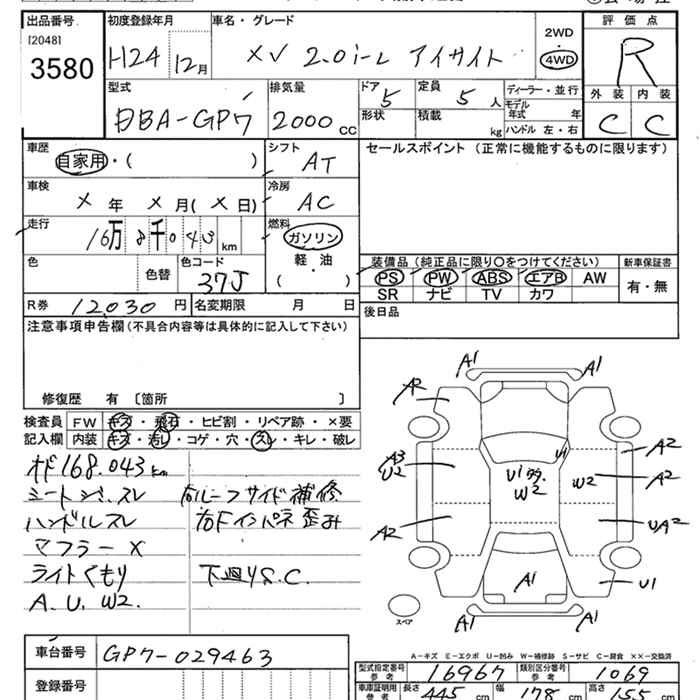 出品番号
[2048]
3580
初度登録年月
H24 12月
車名・グレード
XV 2.0i-L アイサイト
2WD
4WD
評価点
R
型式
DBA-GP7
排気量
2000 CC
ドア
5
形状
定員
5 人
積載
kg
ディーラー・並行
モデル年式 年
ハンドル 左・右
外装 内装
C C
車歴
自家用・( )
シフト
AT
セールスポイント (正常に機能するものに限ります)
車検
X 年 X 月(X 日)
冷房
AC
走行
16万8千043 km
燃料
ガソリン
軽油
・
( )
色
色替
色コード
37J
装備品(純正品に限り〇をつけてください)
新車保証書
PS PW ABS エアB AW
SR ナビ TV カワ
有・無
R券 12,030 円
名変期限 月 日
後日品
注意事項申告欄(不具合内容等は具体的に記入して下さい)
修復歴 有 〔箇所 〕
検査員記入欄
FW キズ・飛石・ヒビ割・リペア跡・×要
内装 キズ・汚し・コゲ・穴・スレ・キレ・破レ
168.043km
シートシミ、スレ
ハンドルスレ
マフラーX
ライトくもり
A.U.W2.
右ルーフサイド補修
右Fインパネ歪み
下廻りS.C.
A1
A1
A2
A3
U2
U1
U1多
W2
W2
A2
A2
A2
UA2
A1
U1
A1
A1
スペア
A-キズ E-エクボ U-凹み W-補修跡 S-サビ C-腐食 ××-交換済
車台番号
GP7-029463
登録番号
型式指定番号 参考
16967
類別区分番号 参考
1069
車庫証明用 参考
長さ 445 cm
幅 178 cm
高さ 155 cm